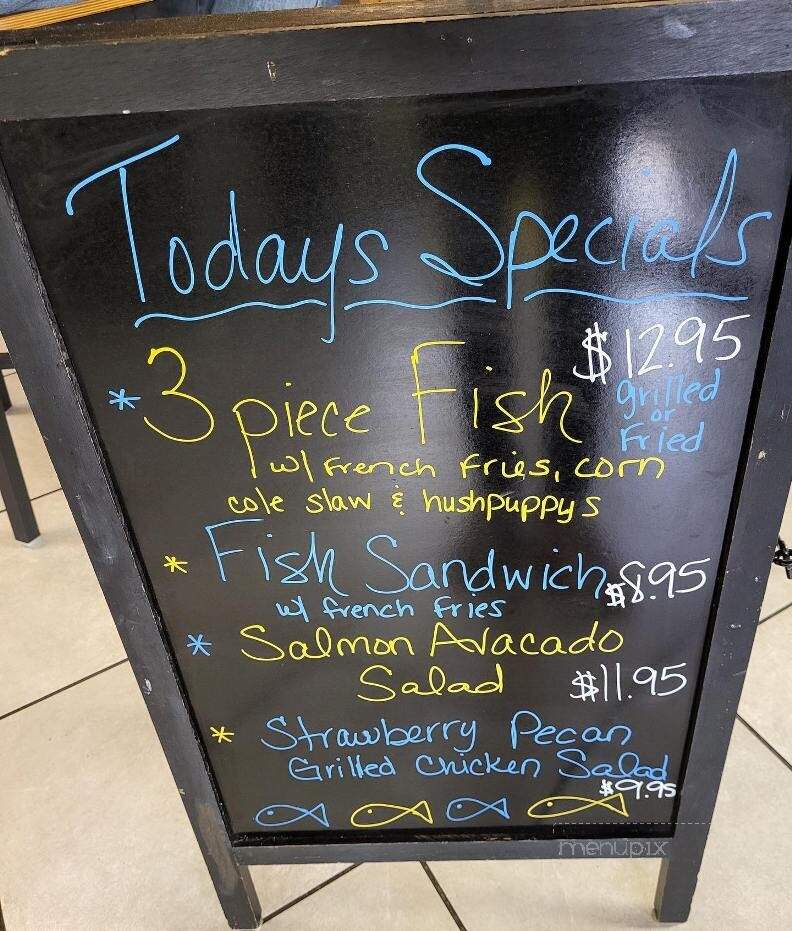 Todays Specials
$12.95
* 3 piece Fish grilled or Fried
w/ French Fries, corn
cole slaw & hushpuppys
* Fish Sandwich $8.95
w/ french fries
* Salmon Avacado
Salad $11.95
* Strawberry Pecan
Grilled Chicken Salad
$9.95
menupix